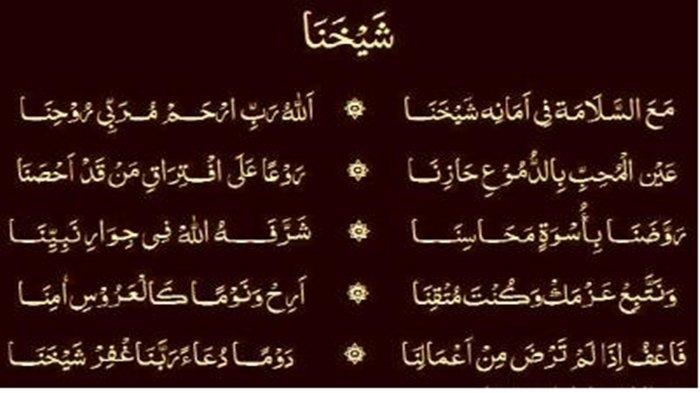 شَيْخَنَا
مَعَ السَّلَامَة فِى اَمَانِه شَيْخَنَا ۞ اَللّٰهُ رَبِّ ارْحَمْ مُرَبِّى رُوْحِنَا
عَيْنِ الْمُحِبِّ بِالدُّمُوْعِ حَازِنَا ۞ رَوْعًا عَلَى افْتِرَاقِ مَنْ قَدْ اَحْصَنَا
رَوَّضَنَا بِأُسْوَةٍ مَحَاسِنَا ۞ شَرَّفَهُ اللّٰهُ فِى جِوَارِ نَبِيِّنَا
وَنَتَّبِعْ عَزْمَكْ وَكُنْتَ مُتْقِنَا ۞ اَرِحْ وَنَوْمًا كَالْعَرُوْسِ أٰمِنَا
فَاعْفُ اِذَا لَمْ تَرْضَ مِنْ اَعْمَالِنَا ۞ دَوْمًا دُعَاءً رَبَّنَا غْفِرْ شَيْخَنَا